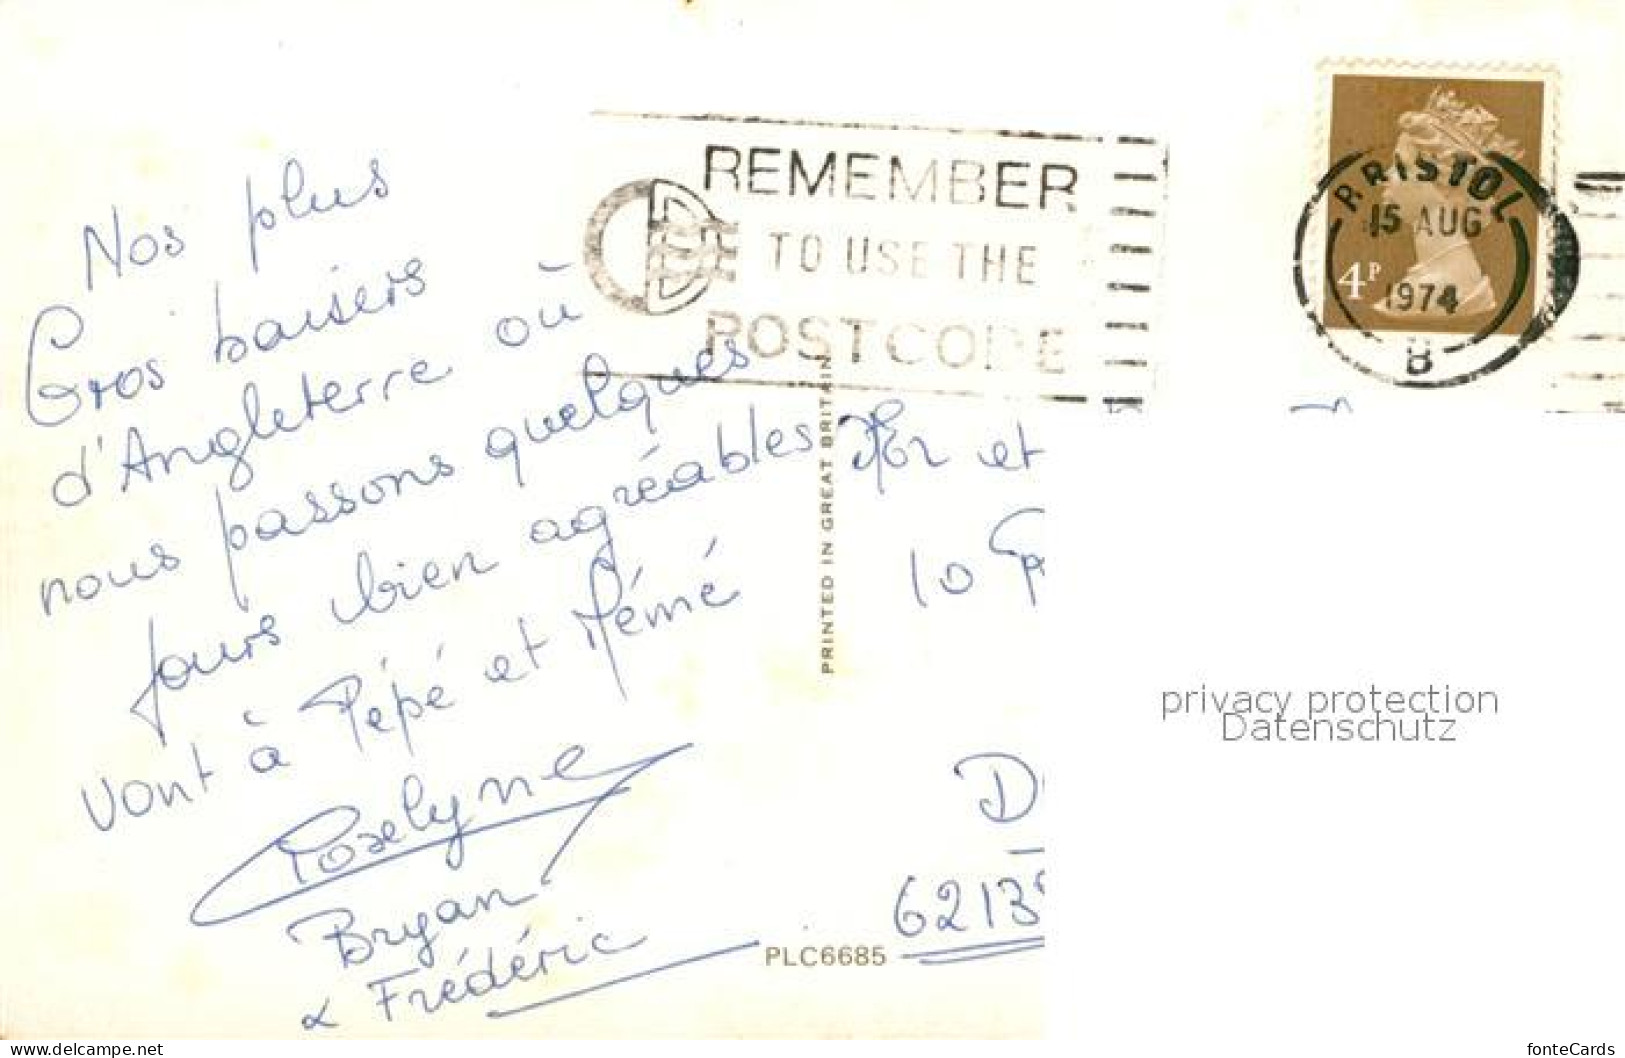 Nos plus
Gros baisers
d'Angleterre où
nous passons quelques
jours bien agréables
vont à Pépé et Mémé
Roselyne
Bryan
& Frédéric
REMEMBER
TO USE THE
POSTCODE
BRISTOL
15 AUG
1974
B
4P
PRINTED IN GREAT BRITAIN
et
10
6213
PLC6685
privacy protection
Datenschutz
www.delcampe.net
fonteCards